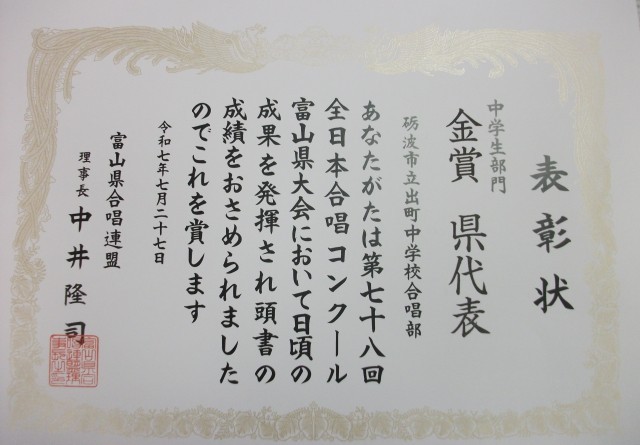 表彰状
中学生部門
金賞 県代表
砺波市立出町中学校合唱部
あなたがたは第七十八回
全日本合唱コンクール
富山県大会において日頃の
成果を発揮され頭書の
成績をおさめられました
のでこれを賞します
令和七年七月二十七日
富山県合唱連盟
理事長 中井隆司